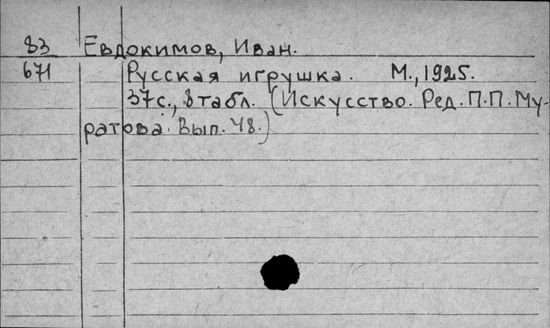 83 Евдокимов, Иван.
671 Русская игрушка. М., 1925.
37с., 8 табл. (Искусство. Ред. П.П. Му-
ратова. Вып. 48.)